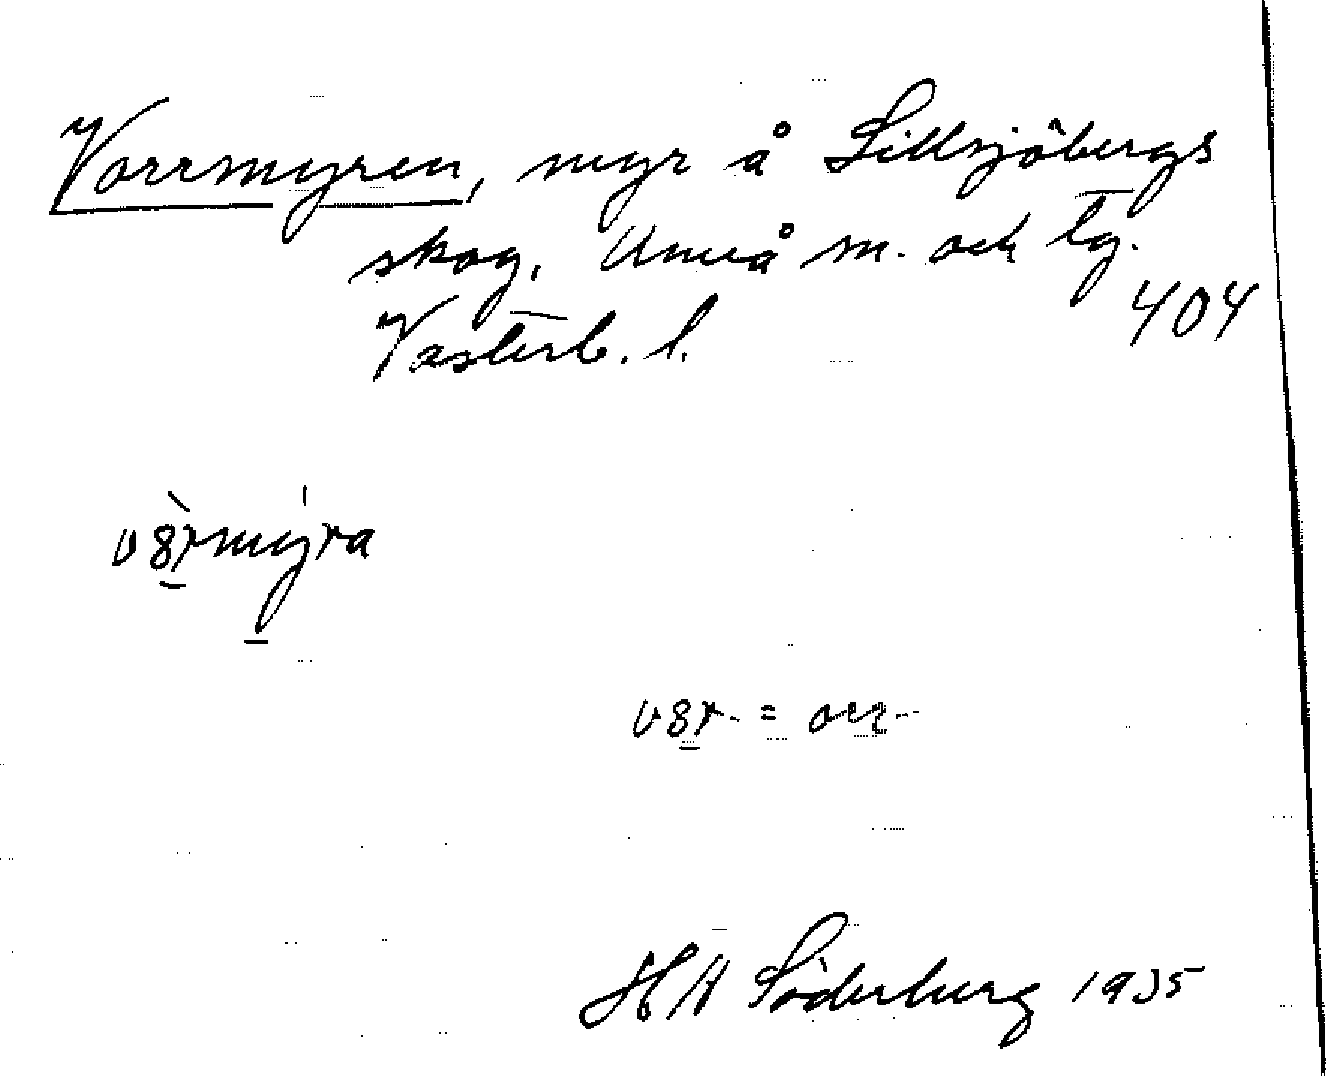 Vorrmyren, myr å Lillsjöbergs
skog, Umeå m. och tg.
Västerb. l. 404
v8̱̀rmýra
v8̱r- = orr-
H H Söderberg 1935